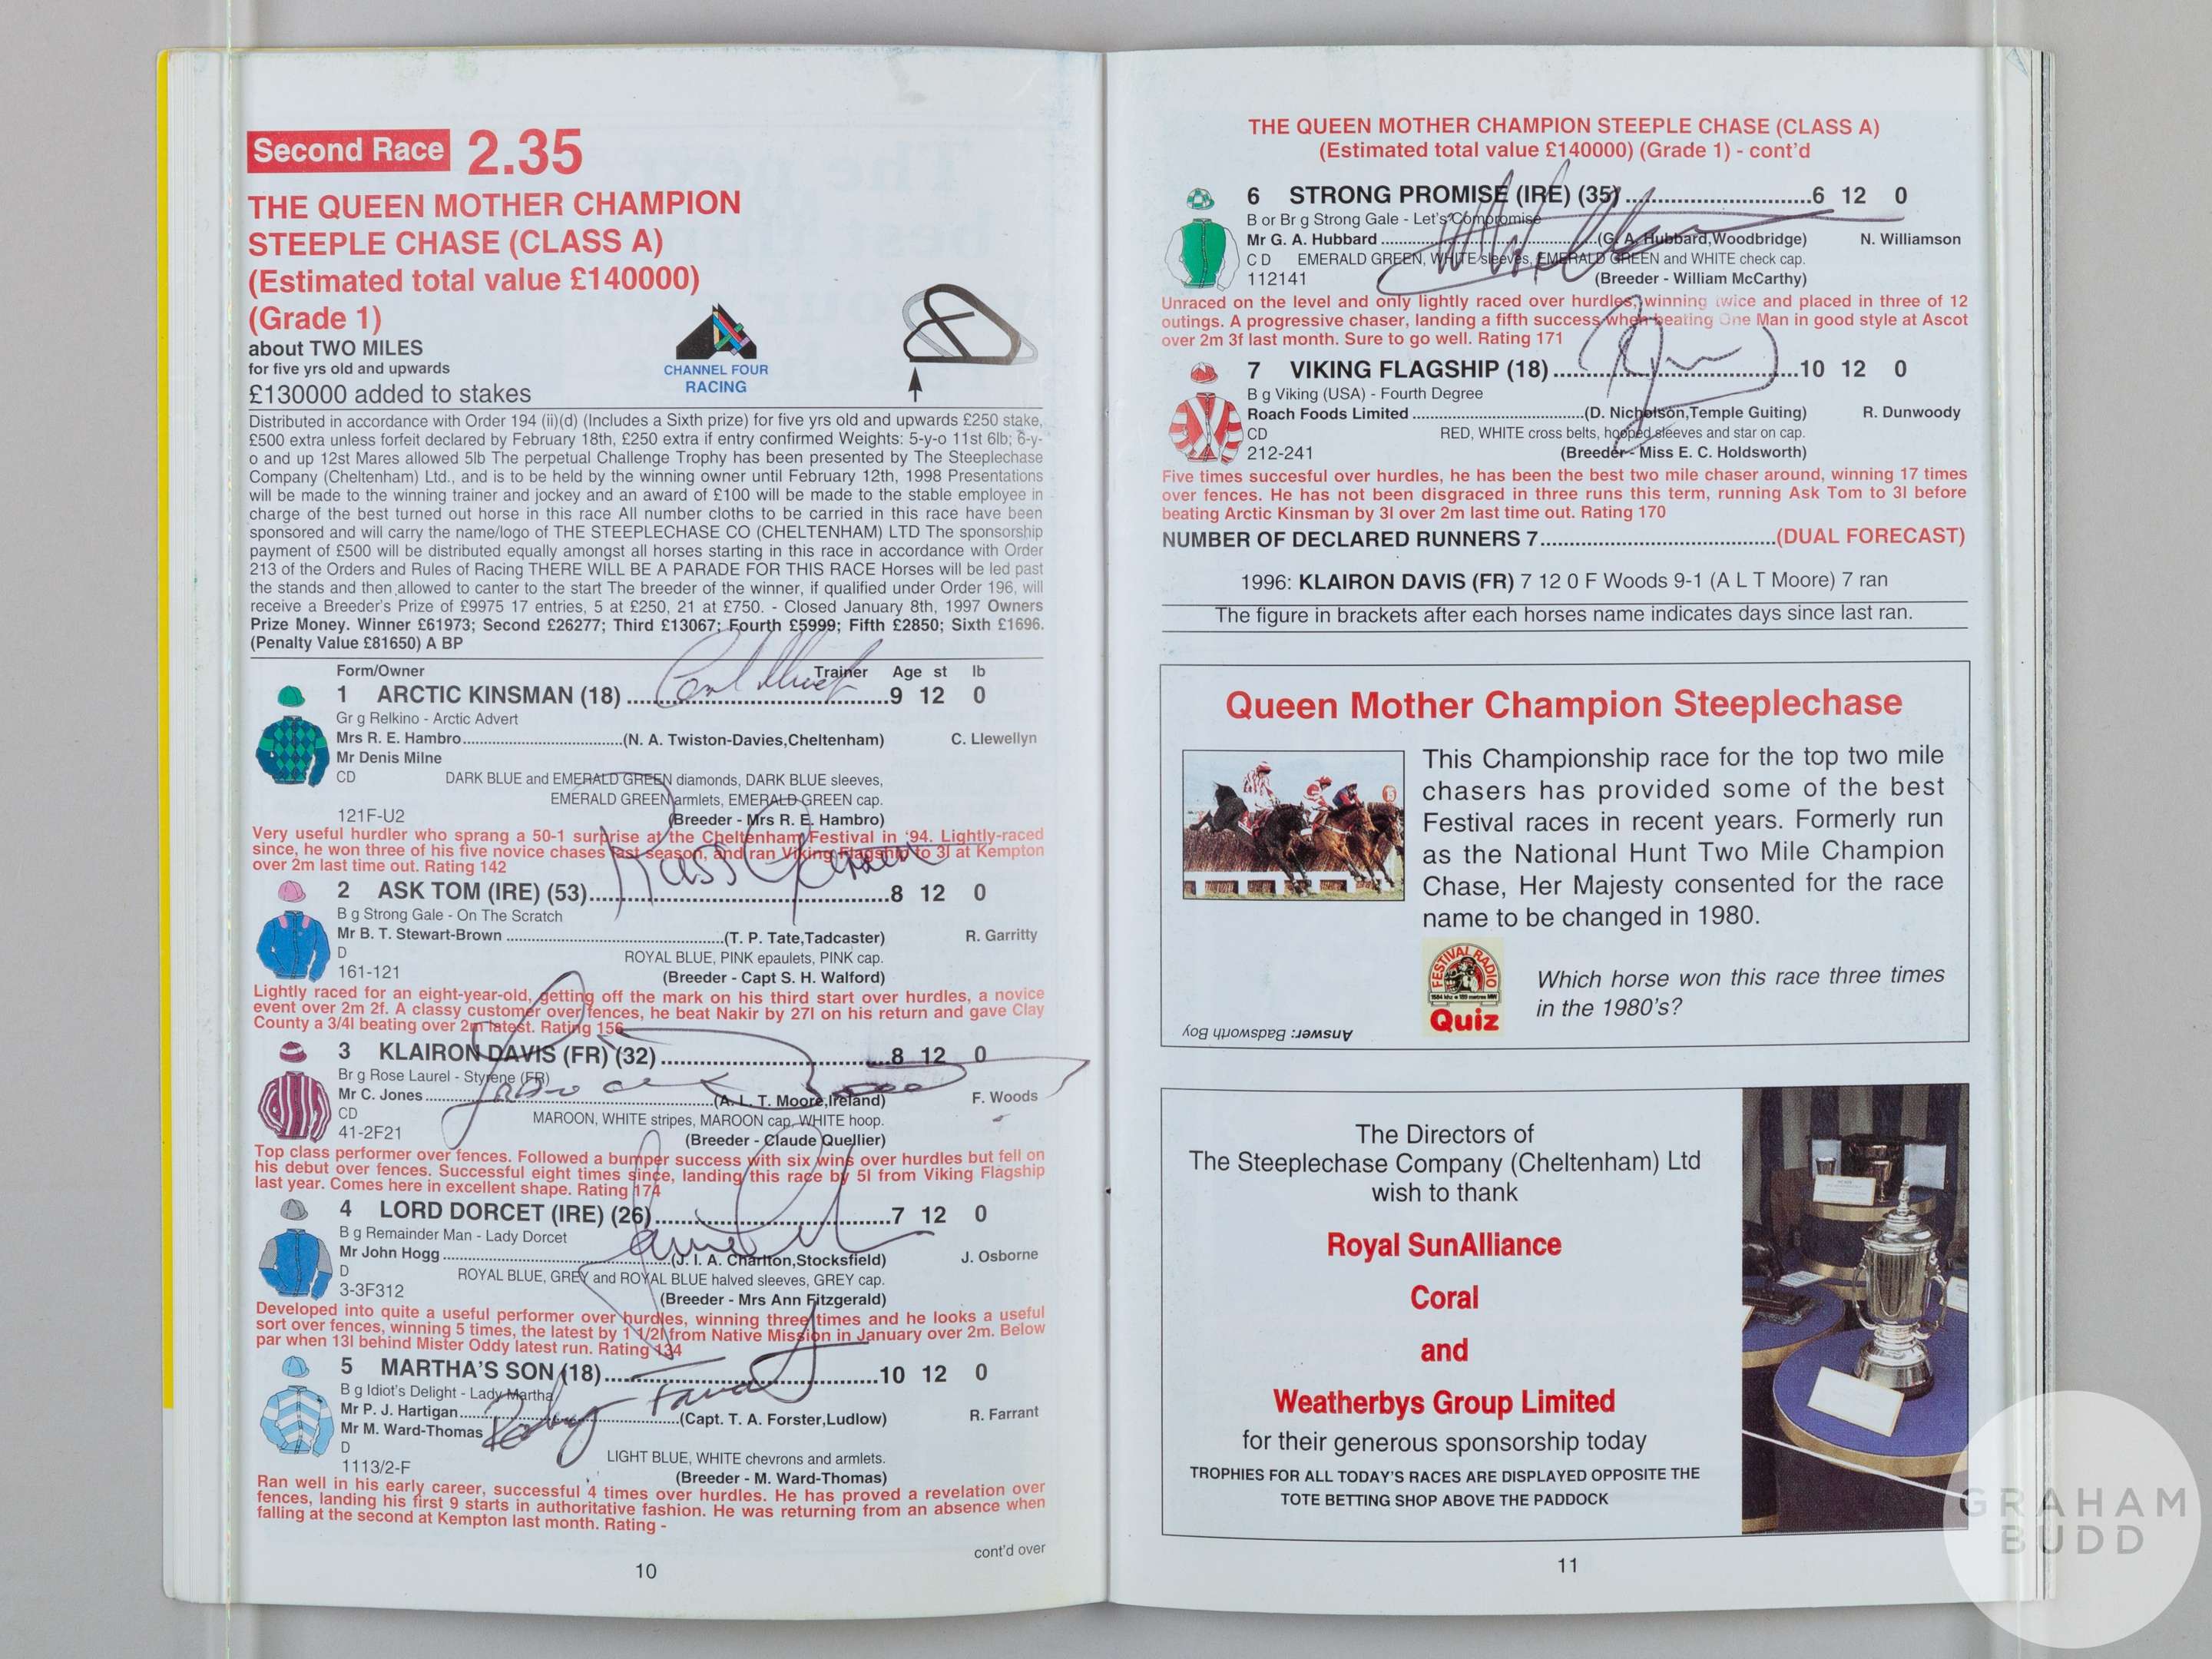 Second Race 2.35
THE QUEEN MOTHER CHAMPION
STEEPLE CHASE (CLASS A)
(Estimated total value £140000)
(Grade 1)
about TWO MILES
for five yrs old and upwards
£130000 added to stakes
CHANNEL FOUR
RACING
Distributed in accordance with Order 194 (ii)(d) (Includes a Sixth prize) for five yrs old and upwards £250 stake,
£500 extra unless forfeit declared by February 18th, £250 extra if entry confirmed Weights: 5-y-o 11st 6lb; 6-y-
o and up 12st Mares allowed 5lb The perpetual Challenge Trophy has been presented by The Steeplechase
Company (Cheltenham) Ltd., and is to be held by the winning owner until February 12th, 1998 Presentations
will be made to the winning trainer and jockey and an award of £100 will be made to the stable employee in
charge of the best turned out horse in this race All number cloths to be carried in this race have been
sponsored and will carry the name/logo of THE STEEPLECHASE CO (CHELTENHAM) LTD The sponsorship
payment of £500 will be distributed equally amongst all horses starting in this race in accordance with Order
213 of the Orders and Rules of Racing THERE WILL BE A PARADE FOR THIS RACE Horses will be led past
the stands and then allowed to canter to the start The breeder of the winner, if qualified under Order 196, will
receive a Breeder's Prize of £9975 17 entries, 5 at £250, 21 at £750. - Closed January 8th, 1997 Owners
Prize Money. Winner £61973; Second £26277; Third £13067; Fourth £5999; Fifth £2850; Sixth £1696.
(Penalty Value £81650) A BP
Form/Owner Trainer Age st lb
1 ARCTIC KINSMAN (18) 9 12 0
Gr g Relkino - Arctic Advert
Mrs R. E. Hambro (N. A. Twiston-Davies,Cheltenham) C. Llewellyn
Mr Denis Milne
CD DARK BLUE and EMERALD GREEN diamonds, DARK BLUE sleeves,
EMERALD GREEN armlets, EMERALD GREEN cap.
121F-U2 (Breeder - Mrs R. E. Hambro)
Very useful hurdler who sprang a 50-1 surprise at the Cheltenham Festival in '94. Lightly-raced
since, he won three of his five novice chases last season, and ran Viking Flagship to 3l at Kempton
over 2m last time out. Rating 142
Russ Garritty
2 ASK TOM (IRE) (53) 8 12 0
B g Strong Gale - On The Scratch
Mr B. T. Stewart-Brown (T. P. Tate,Tadcaster) R. Garritty
D ROYAL BLUE, PINK epaulets, PINK cap.
161-121 (Breeder - Capt S. H. Walford)
Lightly raced for an eight-year-old, getting off the mark on his third start over hurdles, a novice
event over 2m 2f. A classy customer over fences, he beat Nakir by 27l on his return and gave Clay
County a 3/4l beating over 2m latest. Rating 156
3 KLAIRON DAVIS (FR) (32) 8 12 0
Br g Rose Laurel - Styrene (FR)
Mr C. Jones (A. L. T. Moore,Ireland) F. Woods
CD MAROON, WHITE stripes, MAROON cap, WHITE hoop.
41-2F21 (Breeder - Claude Quellier)
Top class performer over fences. Followed a bumper success with six wins over hurdles but fell on
his debut over fences. Successful eight times since, landing this race by 5l from Viking Flagship
last year. Comes here in excellent shape. Rating 174
4 LORD DORCET (IRE) (26) 7 12 0
B g Remainder Man - Lady Dorcet
Mr John Hogg (J. I. A. Charlton,Stocksfield) J. Osborne
D ROYAL BLUE, GREY and ROYAL BLUE halved sleeves, GREY cap.
3-3F312 (Breeder - Mrs Ann Fitzgerald)
Developed into quite a useful performer over hurdles, winning three times and he looks a useful
sort over fences, winning 5 times, the latest by 1 1/2l from Native Mission in January over 2m. Below
par when 13l behind Mister Oddy latest run. Rating 134
5 MARTHA'S SON (18) 10 12 0
B g Idiot's Delight - Lady Martha
Mr P. J. Hartigan (Capt. T. A. Forster,Ludlow) R. Farrant
Mr M. Ward-Thomas
Rodney Farrant
D LIGHT BLUE, WHITE chevrons and armlets.
1113/2-F (Breeder - M. Ward-Thomas)
Ran well in his early career, successful 4 times over hurdles. He has proved a revelation over
fences, landing his first 9 starts in authoritative fashion. He was returning from an absence when
falling at the second at Kempton last month. Rating -
cont'd over
10
THE QUEEN MOTHER CHAMPION STEEPLE CHASE (CLASS A)
(Estimated total value £140000) (Grade 1) - cont'd
6 STRONG PROMISE (IRE) (35) 6 12 0
B or Br g Strong Gale - Let's Compromise
Mr G. A. Hubbard (G. A. Hubbard,Woodbridge) N. Williamson
C D EMERALD GREEN, WHITE sleeves, EMERALD GREEN and WHITE check cap.
112141 (Breeder - William McCarthy)
Unraced on the level and only lightly raced over hurdles, winning twice and placed in three of 12
outings. A progressive chaser, landing a fifth success when beating One Man in good style at Ascot
over 2m 3f last month. Sure to go well. Rating 171
7 VIKING FLAGSHIP (18) 10 12 0
B g Viking (USA) - Fourth Degree
Roach Foods Limited (D. Nicholson,Temple Guiting) R. Dunwoody
CD RED, WHITE cross belts, hooped sleeves and star on cap.
212-241 (Breeder - Miss E. C. Holdsworth)
Five times succesful over hurdles, he has been the best two mile chaser around, winning 17 times
over fences. He has not been disgraced in three runs this term, running Ask Tom to 3l before
beating Arctic Kinsman by 3l over 2m last time out. Rating 170
NUMBER OF DECLARED RUNNERS 7 (DUAL FORECAST)
1996: KLAIRON DAVIS (FR) 7 12 0 F Woods 9-1 (A L T Moore) 7 ran
The figure in brackets after each horses name indicates days since last ran.
Queen Mother Champion Steeplechase
This Championship race for the top two mile
chasers has provided some of the best
Festival races in recent years. Formerly run
as the National Hunt Two Mile Champion
Chase, Her Majesty consented for the race
name to be changed in 1980.
FESTIVAL RADIO
Quiz
Which horse won this race three times
in the 1980's?
Answer: Badsworth Boy
The Directors of
The Steeplechase Company (Cheltenham) Ltd
wish to thank
Royal SunAlliance
Coral
and
Weatherbys Group Limited
for their generous sponsorship today
TROPHIES FOR ALL TODAY'S RACES ARE DISPLAYED OPPOSITE THE
TOTE BETTING SHOP ABOVE THE PADDOCK
11
GRAHAM
BUDD